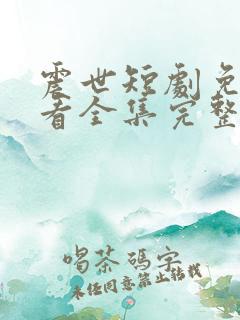 震世短劇免
看全集完整
喝茶碼字
未经同意禁止转载